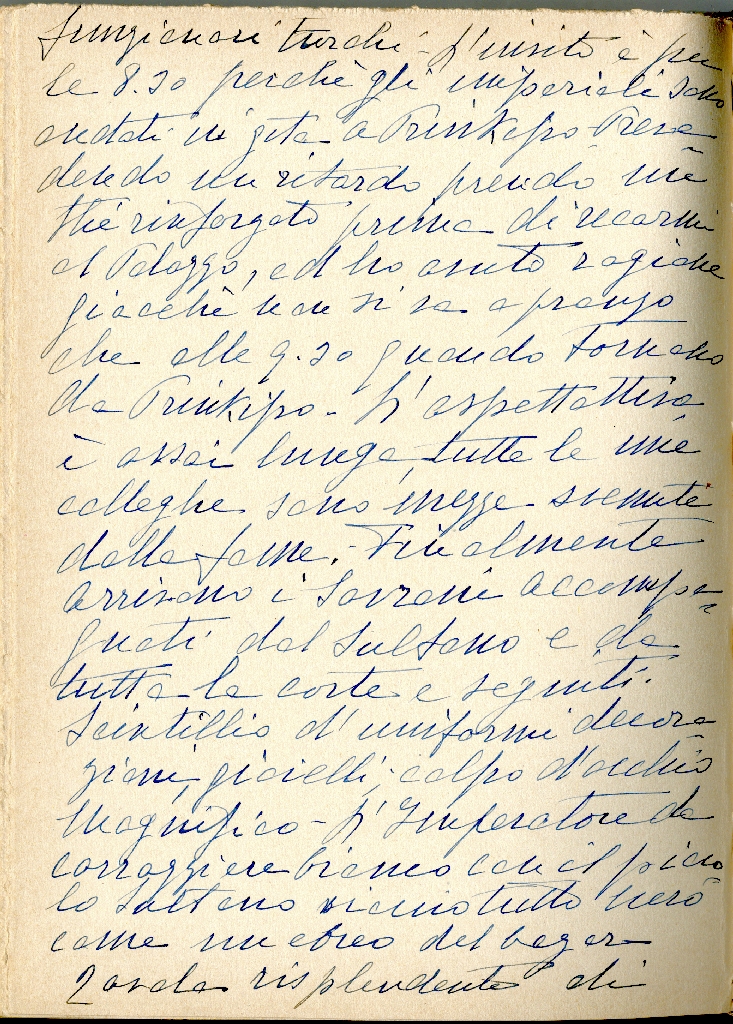 funzionari turchi - L'invito è per
le 8.30 perchè gli imperiali sono
andati in gita a Prinkipo Preve
dendo un ritardo prendo un
thè rinforzato prima di recarmi
al Palazzo, ed ho avuto ragione
giacchè non si va a pranzo
che alle 9.30 quando tornano
da Prinkipo - L'aspettativa
è assai lunga, tutte le mie
colleghe sono mezze svenute
dalla fame. - Finalmente
arrivano i Sovrani accompa-
gnati dal Sultano e da
tutta la corte e seguiti.
Scintillio d'uniformi decora-
zioni, gioielli; colpo d'occhio
magnifico - L'Imperatore da
corazziere bianco con il picco
lo Sultano vicino tutto nero
come un ebreo del bazar
Tavola risplendente di